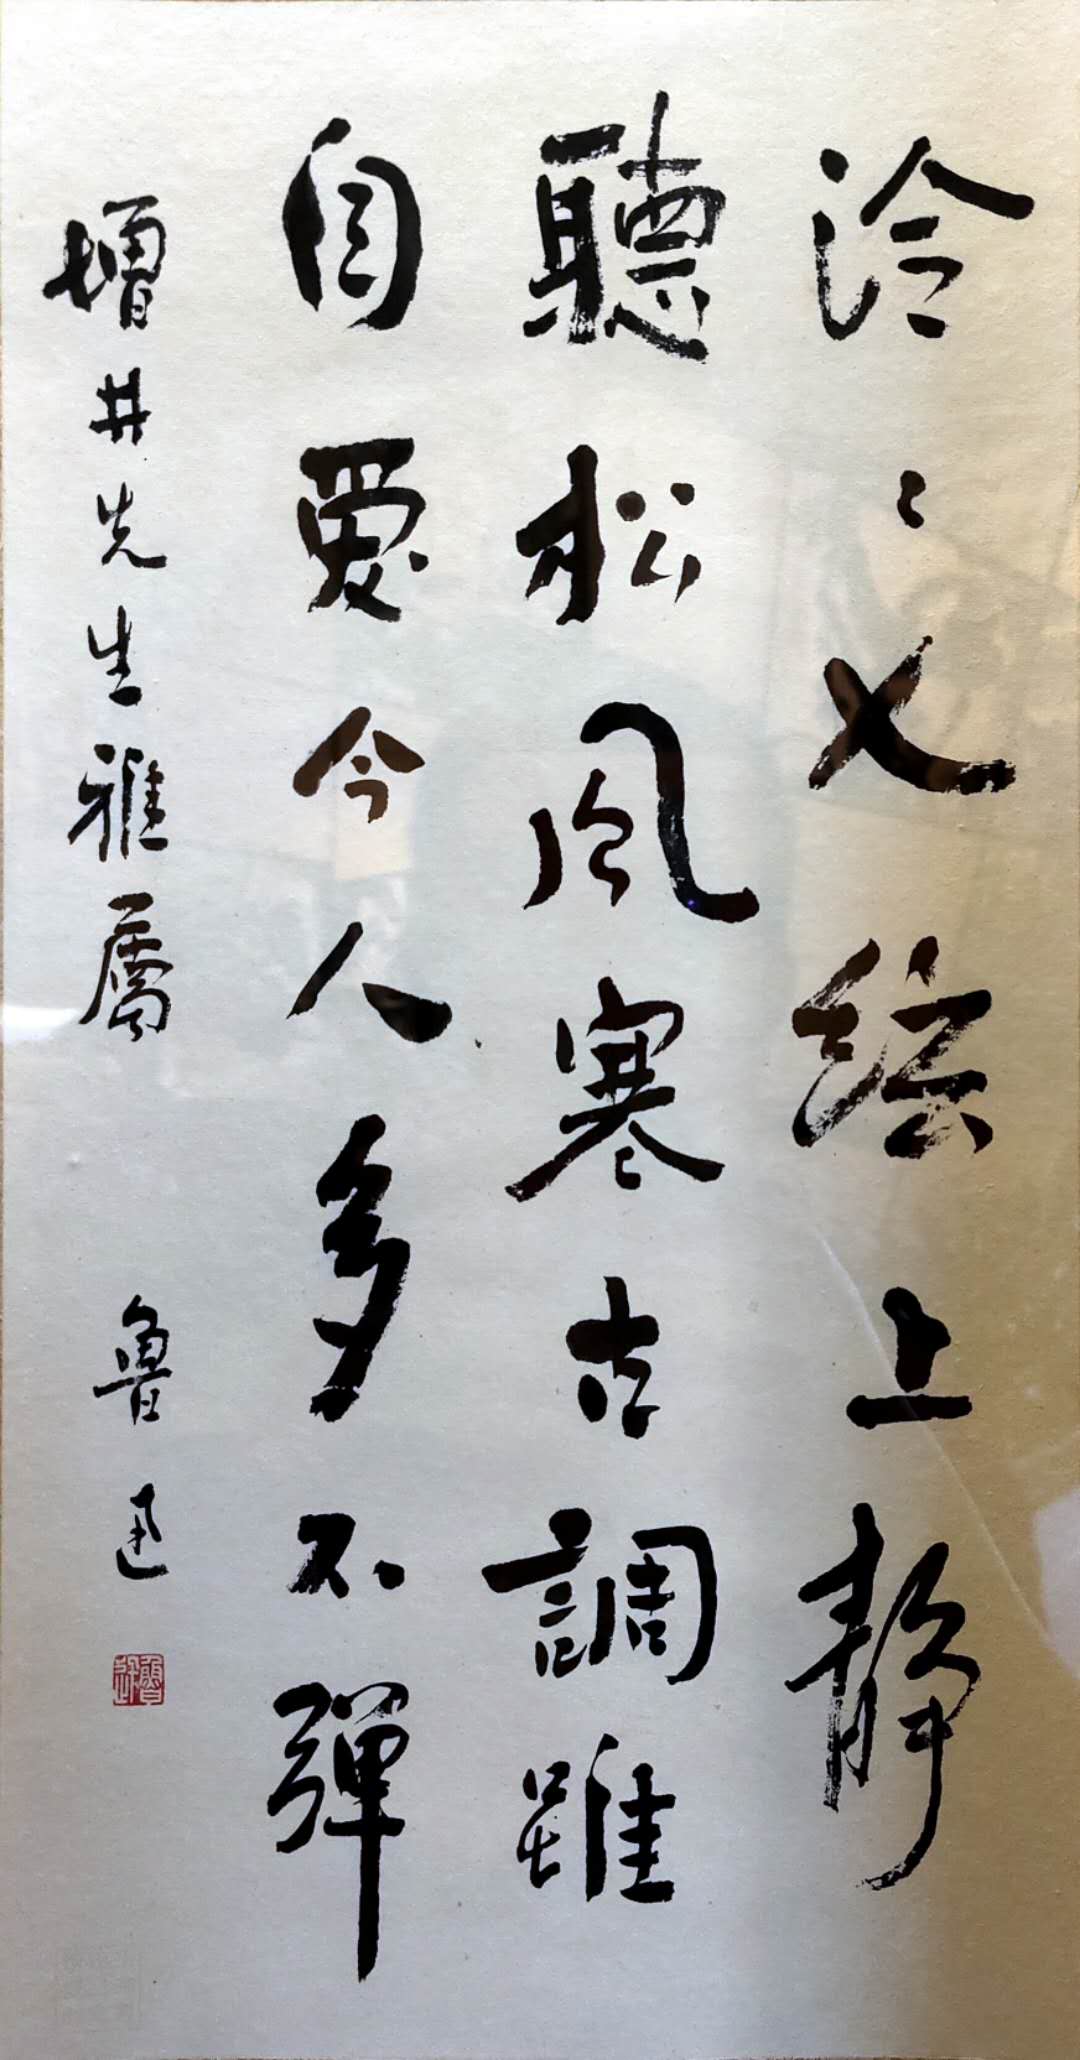 泠〻七絃上靜
聽松風寒古調雖
自愛今人多不彈
增井先生雅屬 魯迅
魯迅